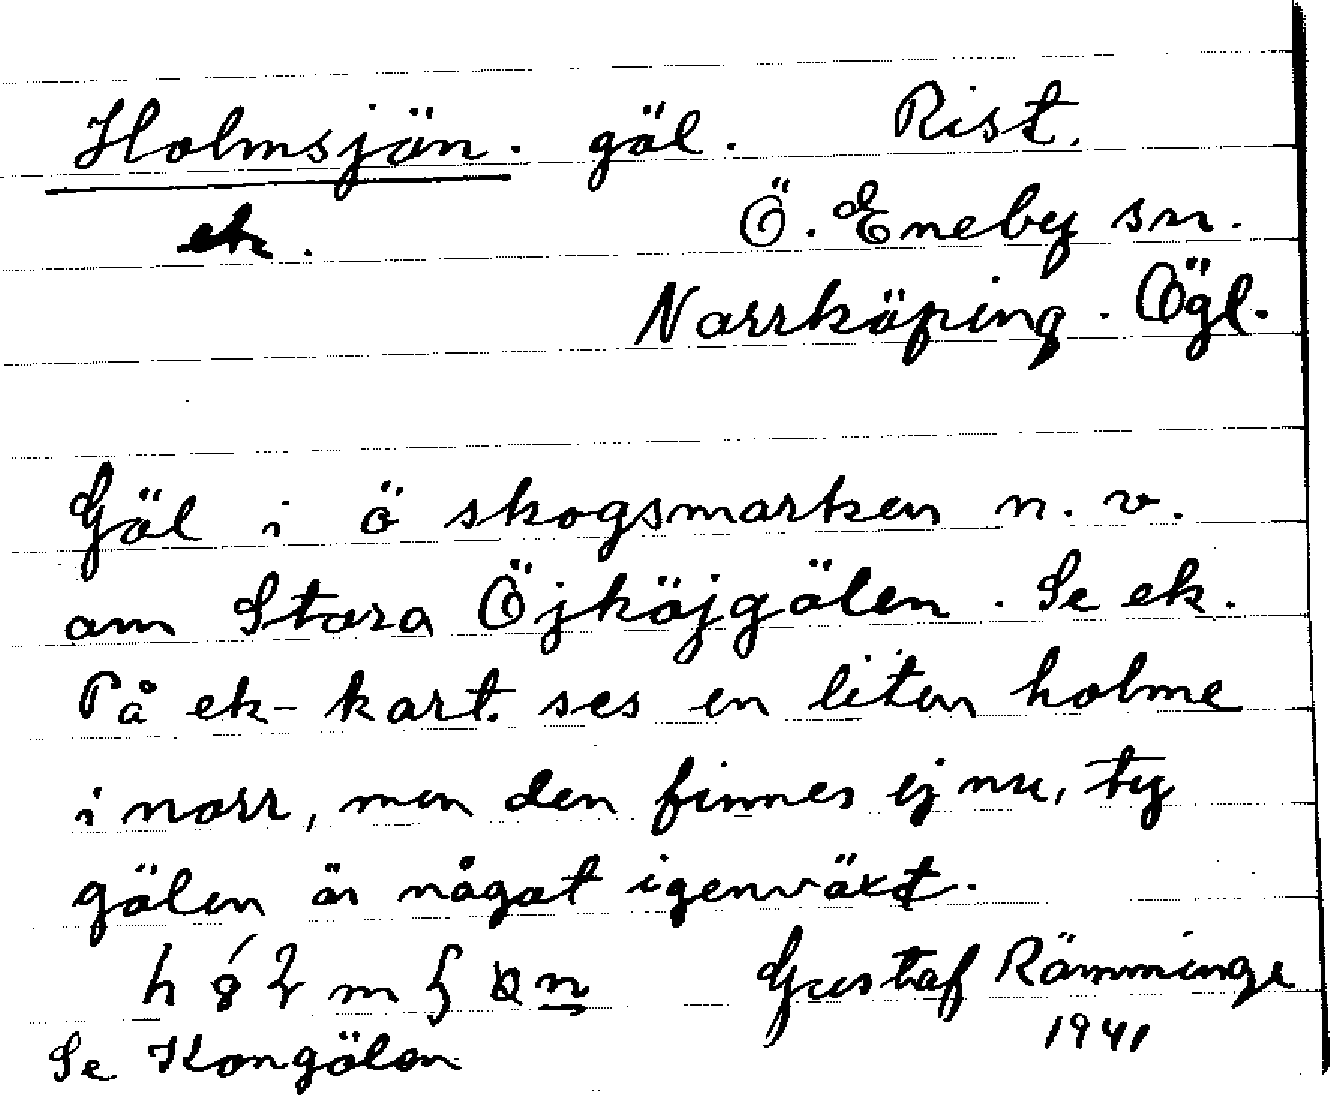 Holmsjön. göl. Rist.
ek. Ö. Eneby sn.
Norrköping. Ögl.
Göl i ö skogsmarken n. v.
om Stora Öjköjgölen. Se ek.
På ek-kart. ses en liten holme
i norr, men den finnes ej nu, ty
gölen är något igenväxt.
Gustaf Rämminge
1941
Se Kongölen